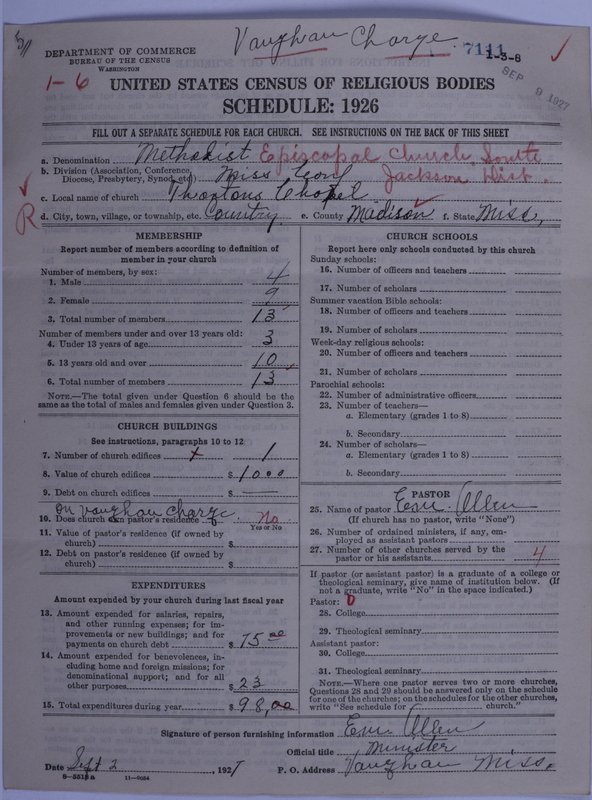 Vaughan Charge
7111
1-3-8
SEP 9 1927
DEPARTMENT OF COMMERCE
BUREAU OF THE CENSUS
WASHINGTON
1-6
UNITED STATES CENSUS OF RELIGIOUS BODIES
SCHEDULE: 1926
FILL OUT A SEPARATE SCHEDULE FOR EACH CHURCH. SEE INSTRUCTIONS ON THE BACK OF THIS SHEET
a. Denomination Methodist Episcopal Church, South
b. Division (Association, Conference, Diocese, Presbytery, Synod, etc.) Miss Conf Jackson Dist.
c. Local name of church Thorntons Chapel
R
d. City, town, village, or township, etc. Country e. County Madison f. State Miss,
MEMBERSHIP
Report number of members according to definition of
member in your church
Number of members, by sex:
1. Male 4
2. Female 9
3. Total number of members 13
Number of members under and over 13 years old:
4. Under 13 years of age 3
5. 13 years old and over 10
6. Total number of members 13
NOTE.—The total given under Question 6 should be
the same as the total of males and females given under Question 3.
CHURCH BUILDINGS
See instructions, paragraphs 10 to 12
7. Number of church edifices 1
8. Value of church edifices $ 1000
9. Debt on church edifices $ —
On Vaughan Charge
10. Does church own pastor's residence No
Yes or No
11. Value of pastor's residence (if owned by
church) $
12. Debt on pastor's residence (if owned by
church) $
EXPENDITURES
Amount expended by your church during last fiscal year
13. Amount expended for salaries, repairs,
and other running expenses; for im-
provements or new buildings; and for
payments on church debt $ 75 00
14. Amount expended for benevolences, in-
cluding home and foreign missions; for
denominational support; and for all
other purposes $ 23
15. Total expenditures during year $ 98,00
CHURCH SCHOOLS
Report here only schools conducted by this church
Sunday schools:
16. Number of officers and teachers
17. Number of scholars
Summer vacation Bible schools:
18. Number of officers and teachers
19. Number of scholars
Week-day religious schools:
20. Number of officers and teachers
21. Number of scholars
Parochial schools:
22. Number of administrative officers
23. Number of teachers—
a. Elementary (grades 1 to 8)
b. Secondary
24. Number of scholars—
a. Elementary (grades 1 to 8)
b. Secondary
PASTOR
25. Name of pastor Allen
(If church has no pastor, write "None")
26. Number of ordained ministers, if any, em-
ployed as assistant pastors
27. Number of other churches served by the
pastor or his assistants 4
If pastor (or assistant pastor) is a graduate of a college or
theological seminary, give name of institution below. (If
not a graduate, write "No" in the space indicated.)
Pastor: 0
28. College
29. Theological seminary
Assistant pastor:
30. College
31. Theological seminary
NOTE.—Where one pastor serves two or more churches,
Questions 28 and 29 should be answered only on the schedule
for one of the churches; on the schedules for the other churches,
write "See schedule for church."
Signature of person furnishing information Allen
Official title Minister
Date Sept 2, 1927 P. O. Address Vaughan Miss,
8-5513a 11-9684